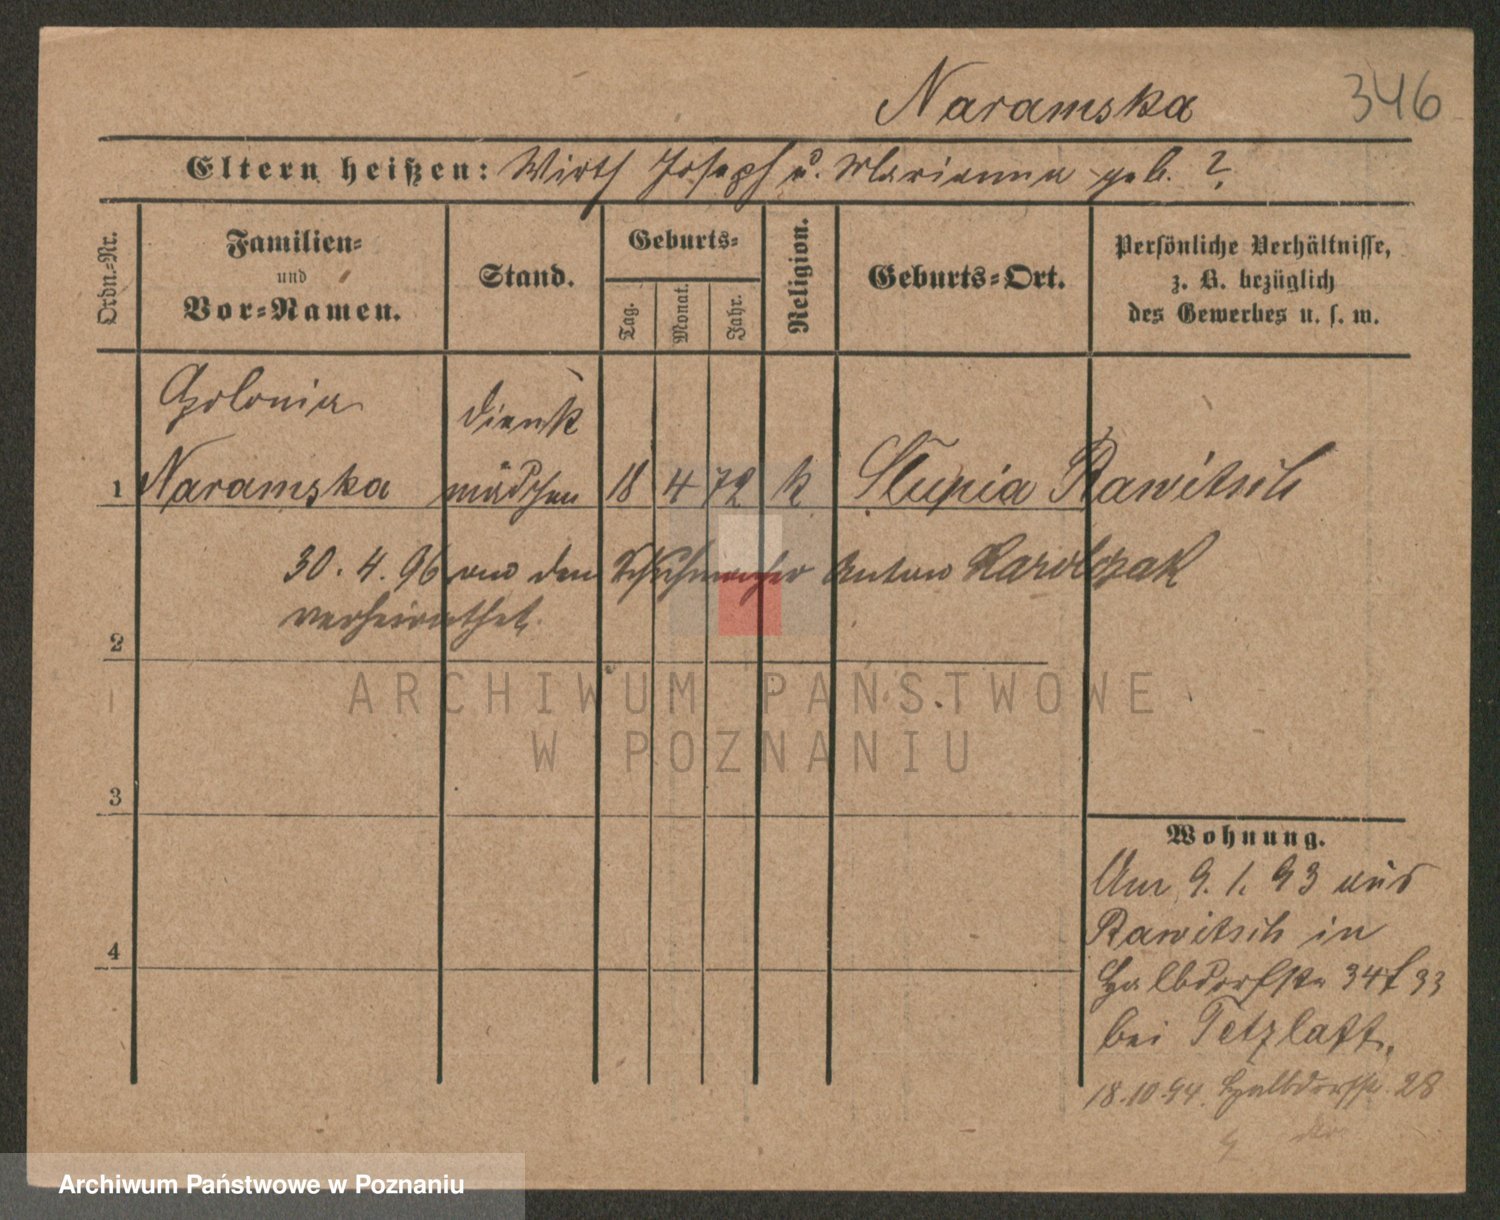 Naramska 346
Eltern heißen: Wirth Joseph u. Marianna geb. ?
Ordn.-Nr.
Familien-
und
Vor-Namen.
Stand.
Geburts-
Tag.
Monat.
Jahr.
Religion.
Geburts-Ort.
Persönliche Verhältnisse,
z. B. bezüglich
des Gewerbes u. s. w.
Apolonia
Dienst
1 Naramska mädchen 18 4 72 k Slupia Rawitsch
30. 4. 96 an den Schuhmacher Anton Karolczak
verheirathet.
2
ARCHIWUM PAŃSTWOWE
W POZNANIU
3
Wohnung.
9. 1. 93 aus
Rawitsch in
4
Halbdorfstr 34 33
bei Tetzlaff.
18.10.94. Halbdorfstr. 28
Archiwum Państwowe w Poznaniu